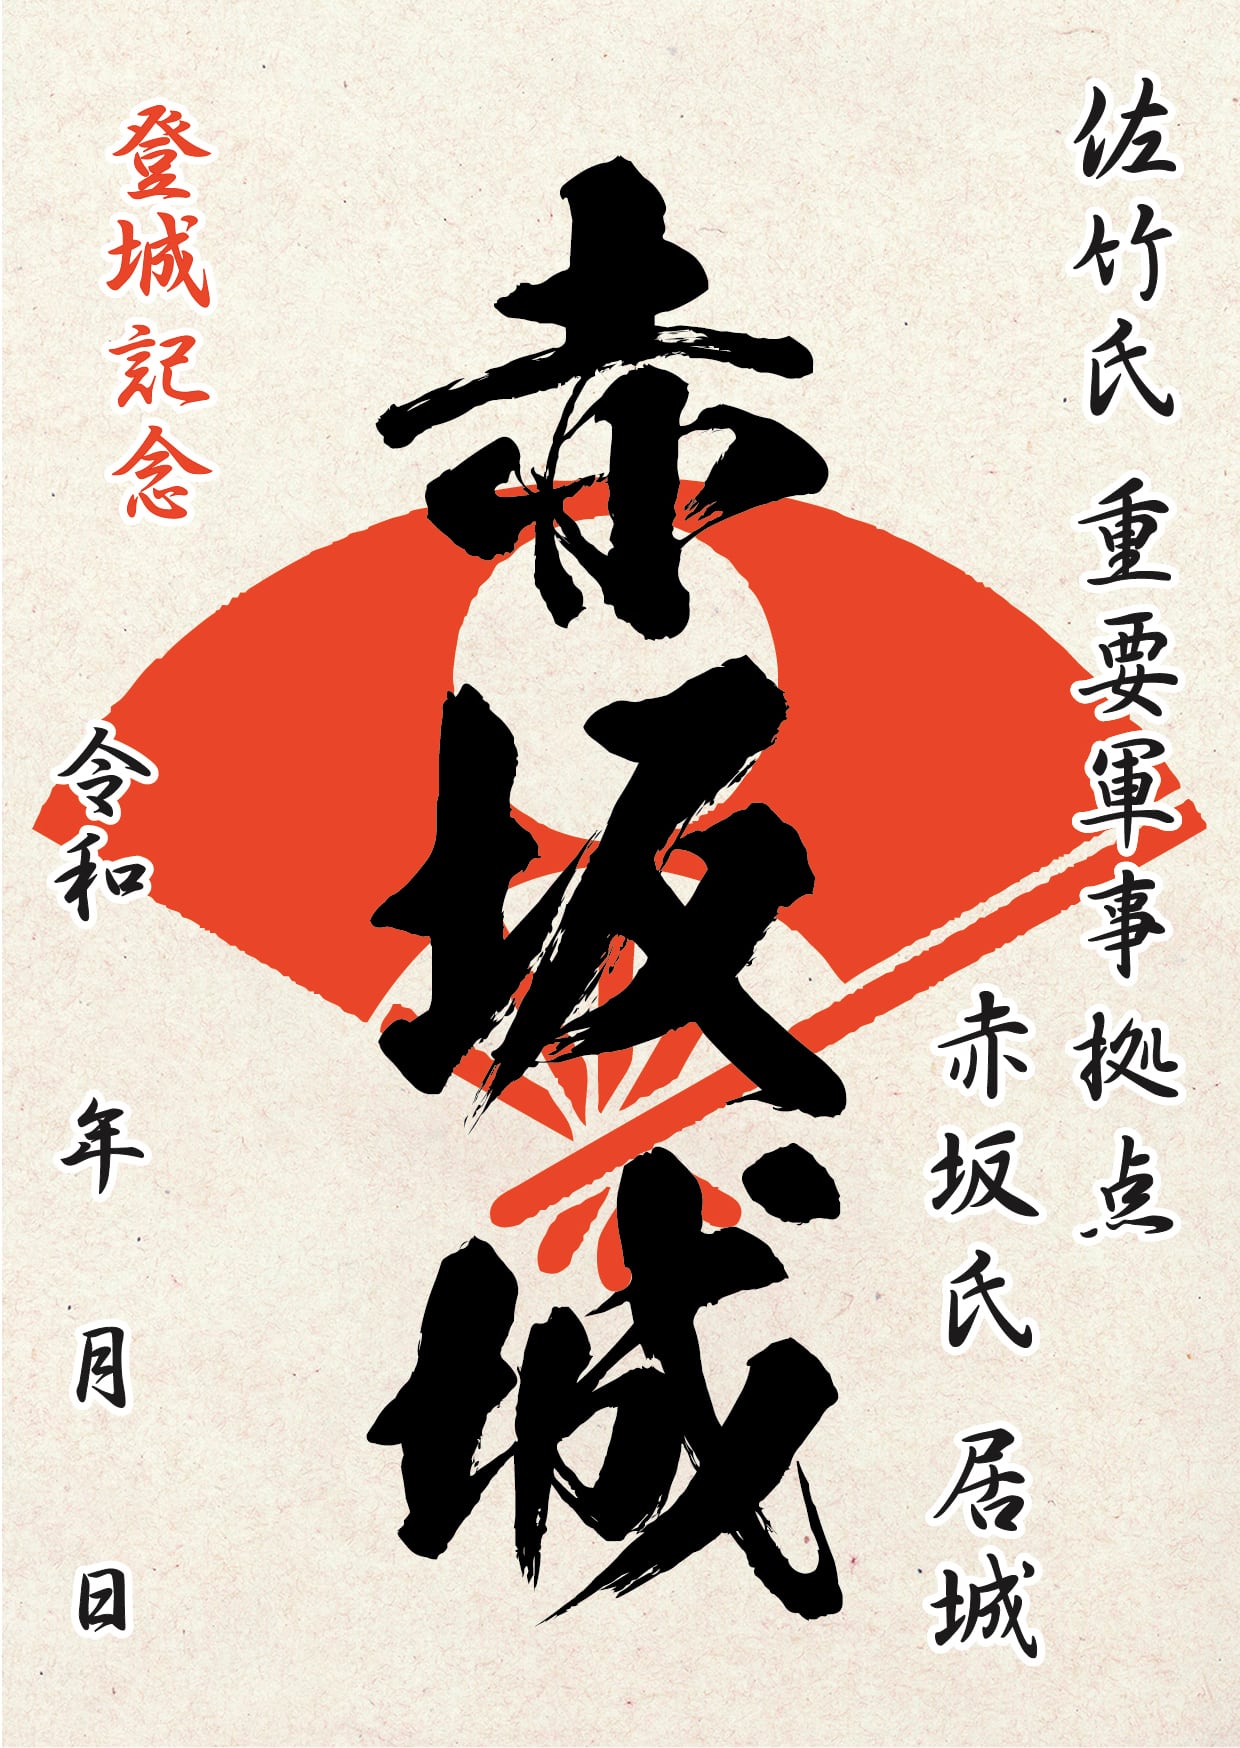 佐竹氏 重要軍事拠点
赤坂氏 居城
赤坂城
登城記念
令和 年 月 日